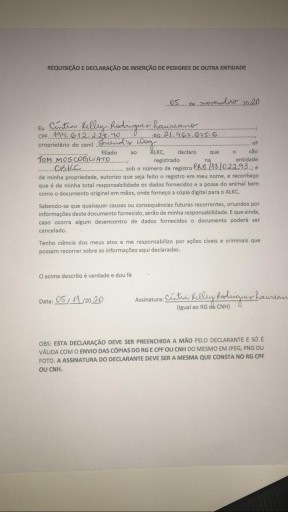 REQUISIÇÃO E DECLARAÇÃO DE INSERÇÃO DE PEDIGREE DE OUTRA ENTIDADE
05 de novembro 2020
Eu Cíntia Kelley Rodrigues Laureano
CPF RG
proprietário do canil nº
filiado ao ALKC, declaro que o cão
TOM MOSCOGLIATO, registrado na entidade
sob o número de registro e
de minha propriedade, autorizo que seja feito o registro em meu nome, e reconheço
que é de minha total responsabilidade os dados fornecidos e a posse do animal bem
como o documento original em mãos, onde forneço a cópia digital para o ALKC.
Sabendo-se que quaisquer causas ou consequências futuras recorrentes, oriundos por
informações deste documento fornecido, serão de minha responsabilidade. E que ainda,
caso ocorra algum desencontro de dados fornecidos o documento poderá ser
cancelado.
Tenho ciência dos meus atos e me responsabilizo por ações cíveis e criminais que
possam recorrer sobre as informações aqui declaradas.
O acima descrito é verdade e dou fé
Data: 05/11/2020 Assinatura: Cíntia Kelley Rodrigues Laureano
(Igual ao RG da CNH)
OBS: ESTA DECLARAÇÃO DEVE SER PREENCHIDA A MÃO PELO DECLARANTE E SÓ É
VÁLIDA COM O ENVIO DAS CÓPIAS DO RG E CPF OU CNH DO MESMO EM JPEG, PNG OU
FOTO. A ASSINATURA DO DECLARANTE DEVE SER A MESMA QUE CONSTA NO RG CPF
OU CNH.